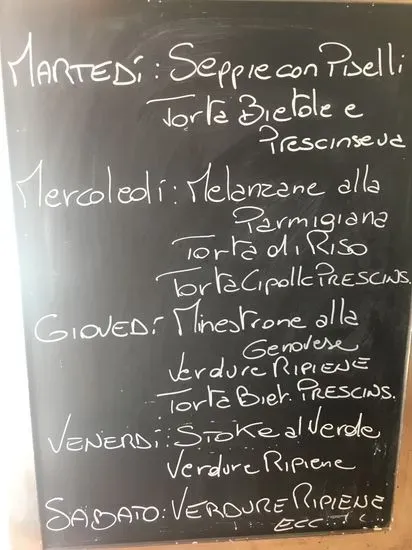 MARTEDÍ: Seppie con Piselli
Torta Bietole e
Prescinseua
Mercoledí: Melanzane alla
Parmigiana
Torta di Riso
Torta Cipolle PRESCINS.
GIOVEDÍ Minestrone alla
Genovese
Verdure RIPIENE
Torta Biet. PRESCINS.
VENERDÍ: STOKE al Verde
Verdure Ripiene
SABATO: VERDURE RIPIENE
ECC